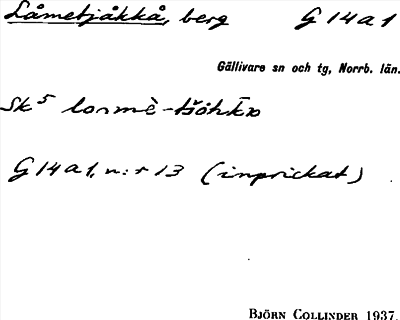 Låmetjåkkå, berg G 14 a 1
Gällivare sn och tg, Norrb. län.
Sk⁵
G 14 a 1, n:r 13 (inprickat)
BJÖRN COLLINDER 1937.